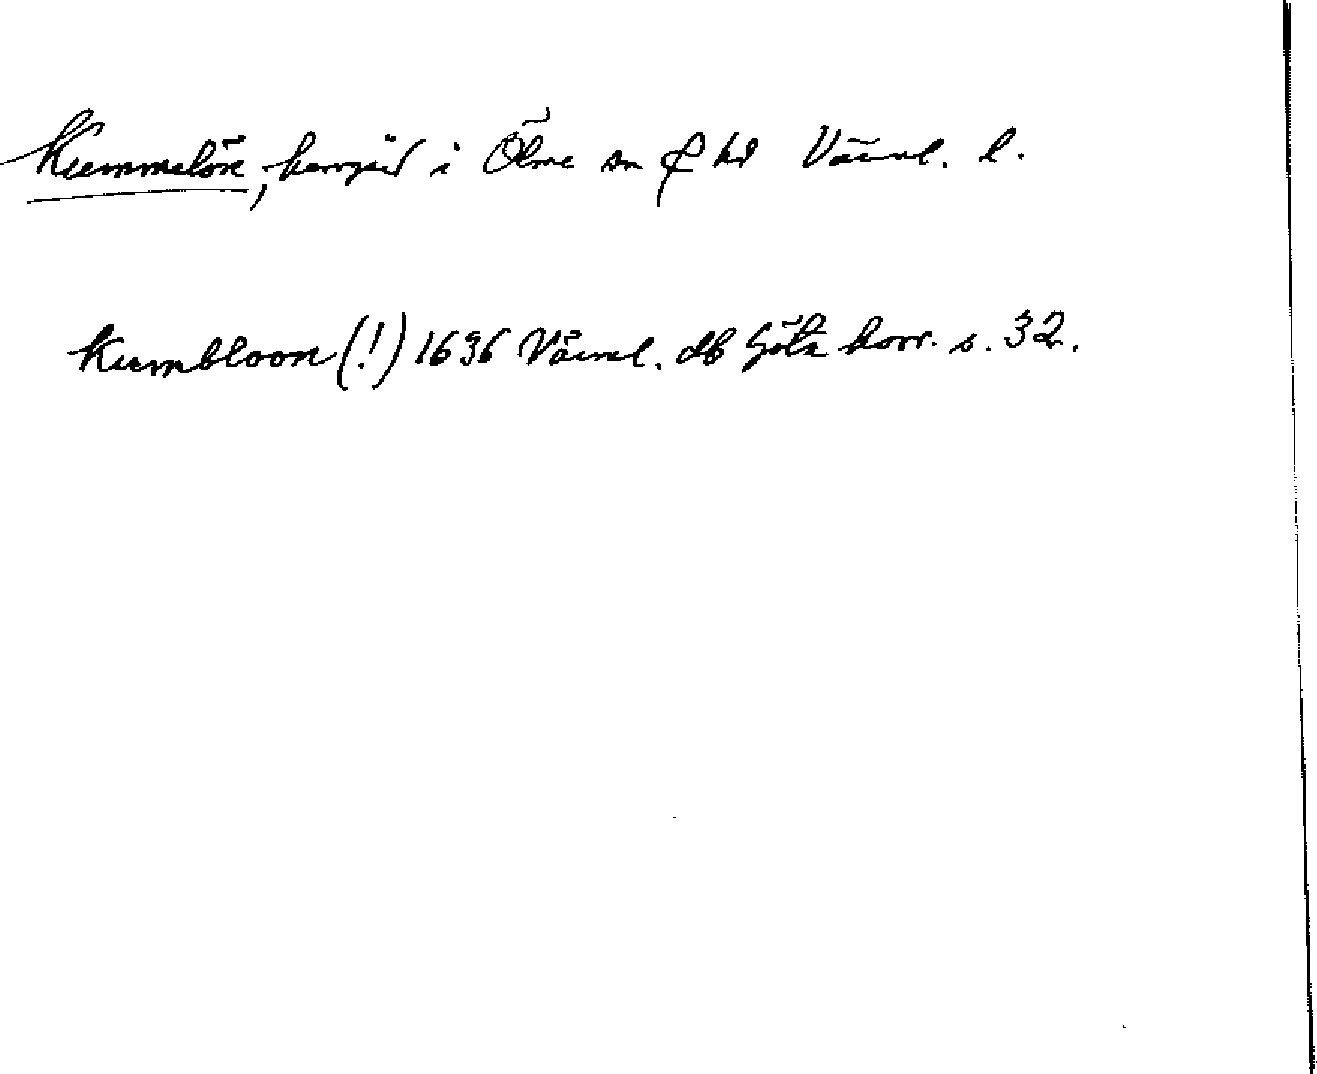 Kummelön, herrgård i Ölme sn & hd Värml. l.
Kumbloon (!) 1636 Värml. db Göta hovr. s. 32.